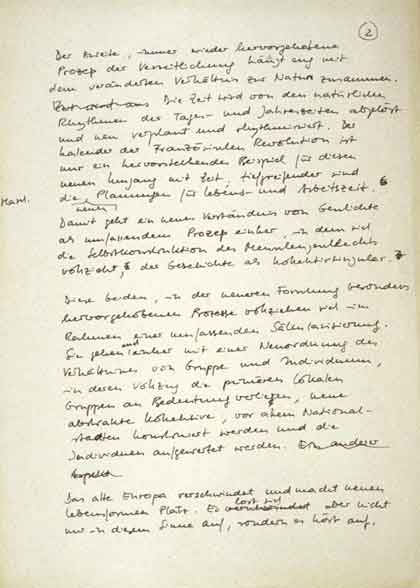 2
Der zweite, immer wieder hervorgehobene
Prozeß der Verzeitlichung hängt eng mit
dem veränderten Verhältnis zur Natur zusammen.
Die Zeit wird von den natürlichen
Rhythmen der Tages- und Jahreszeiten abgelöst
und neu geplant und rhythmisiert. Der
Kalender der Französischen Revolution ist
nur ein hervorstechendes Beispiel für diesen
neuen Umgang mit Zeit, tiefgreifender sind
die Planungen für Lebens- und Arbeitszeit.
neuen
Damit geht ein neues Verständnis von Geschichte
als umfassendem Prozeß einher, in dem sich
die Selbstkonstruktion des Menschengeschlechts
vollzieht, der Geschichte als Kollektivsingular.
Diese beiden, in der neueren Forschung besonders
hervorgehobenen Prozesse vollziehen sich im
Rahmen einer umfassenden Säkularisierung.
Sie gehen einher mit einer Neuordnung des
Verhältnisses von Gruppe und Individuum,
in deren Vollzug die primären lokalen
Gruppen an Bedeutung verlieren, neue
abstrakte Kollektive, vor allem National-
staaten konstruiert werden und die
Individuen aufgewertet werden. Ein anderer
Aspekt
Das alte Europa verschwindet und macht neuen
Lebensformen Platz. Es löst sich aber nicht
nur in diesem Sinne auf, sondern es hört auf,